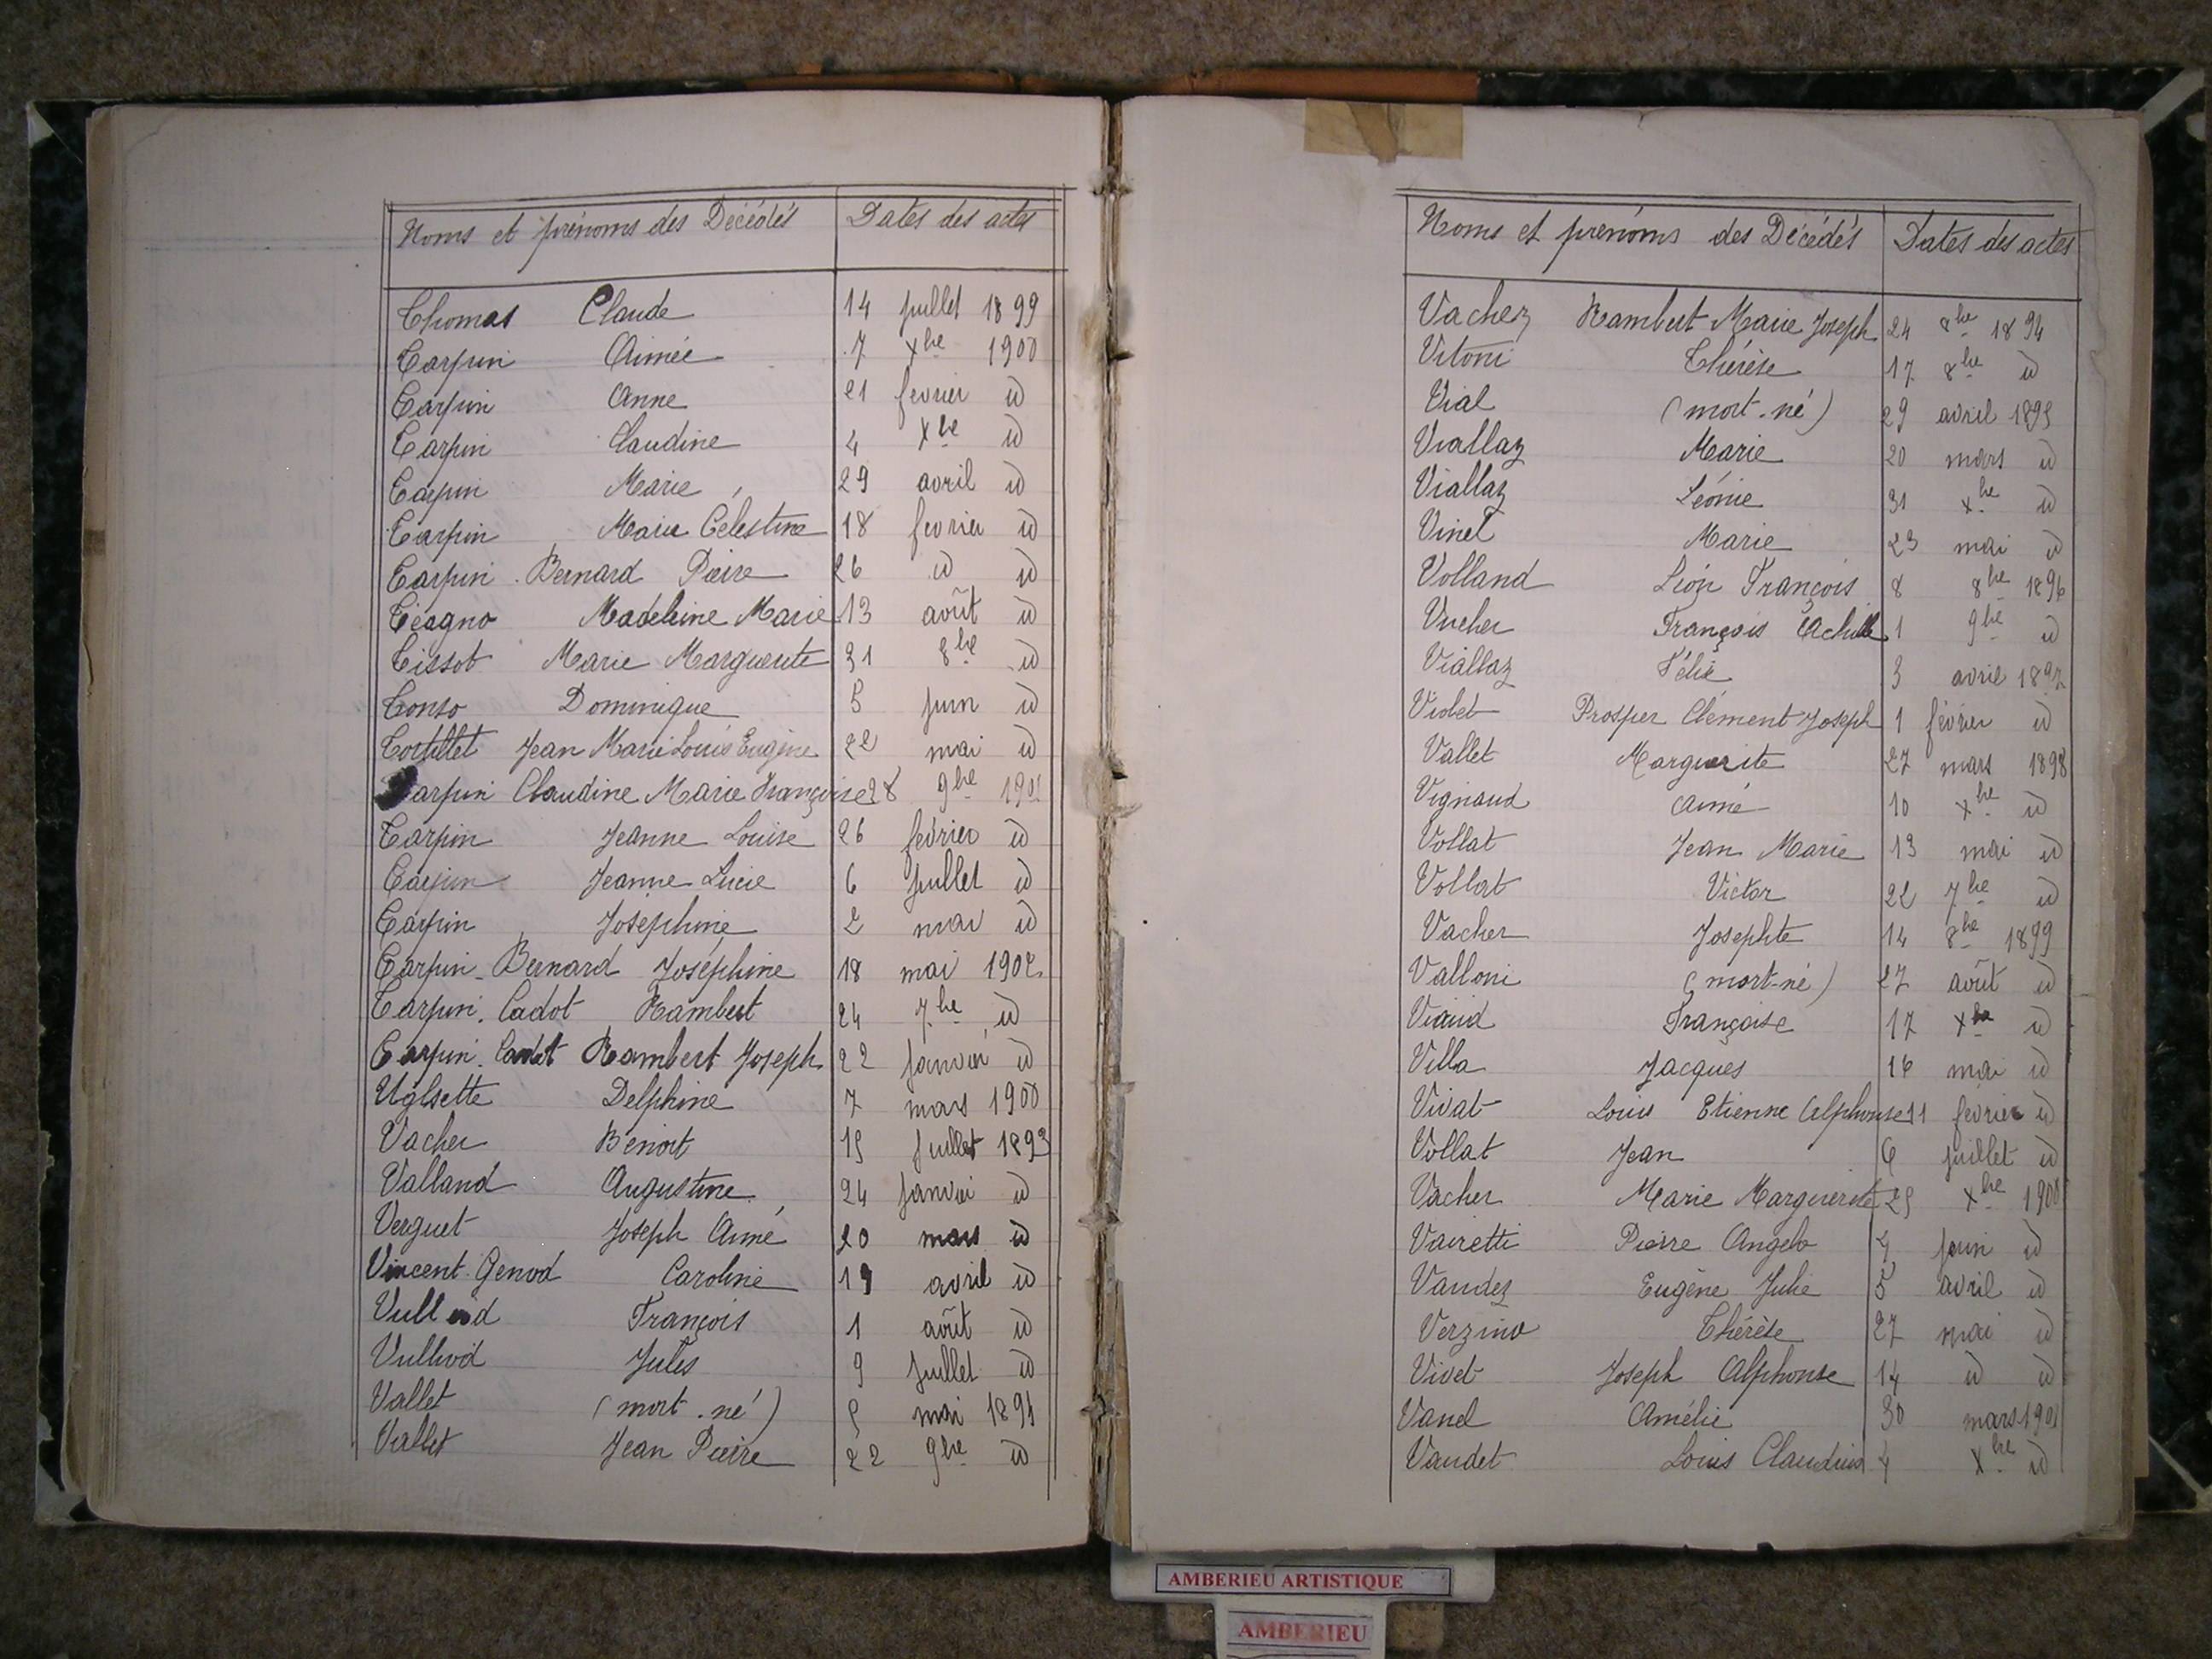 Noms et prénoms des Décédés Dates des actes
Thomas Claude 14 juillet 1899
Tarpin Aimée 7 xbre 1900
Tarpin Anne 21 fevrier id
Tarpin Claudine 4 xbre id
Tarpin Marie 29 avril id
Tarpin Marie Célestine 18 fevrier id
Tarpin Bernard Pierre 26 id id
Téagno Madeleine Marie 13 août id
Tissot Marie Marguerite 31 8bre id
Tonso Dominique 5 juin id
Tortillet Jean Marie Louis Eugène 22 mai id
Tarpin Claudine Marie Françoise 28 9bre 1901
Tarpin Jeanne Louise 26 février id
Tarpin Jeanne Lucie 6 juillet id
Tarpin Joséphine 2 mai id
Tarpin-Bernard Joséphine 18 mai 1902
Tarpin. Cadot Rambert 24 7bre id
Tarpin. Cadet Rambert Joseph 22 janvier id
Uglsette Delphine 7 mars 1900
Vacher Benoit 15 juillet 1893
Valland Augustine 24 janvier id
Verguet Joseph Aimé 20 mars id
Vincent. Genod Caroline avril id
François 1 août id
Vulliod Jules 9 juillet id
Vallet (mort-né) 5 mai 1894
Vallet Jean Pierre 22 9bre id
Noms et prénoms des Décédés Dates des actes
Vachez Rambert Marie Joseph 24 8bre 1894
Vitoni Thérèse 17 8bre id
Vial (mort-né) 29 avril 1895
Viallaz Marie 20 mars id
Viallaz Léonie 31 xbre id
Vinet Marie 23 mai id
Volland Léon François 8 8bre 1896
Vucher François Achille 1 9bre id
Viallaz Félix 3 avril 1897
Violet Prosper Clément Joseph 1 février id
Vallet Marguerite 27 mars 1898
Vignaud Aimé 10 xbre id
Vollat Jean Marie 13 mai id
Vollat Victor 22 7bre id
Vacher Josephte 14 8bre 1899
Valloni (mort-né) 27 août id
Viaud Françoise 17 xbre id
Villa Jacques 16 mai id
Vivat Louis Etienne Alphonse 11 fevrier id
Vollat Jean 6 juillet id
Vacher Marie Marguerite 25 xbre 1900
Vairetti Pierre Angelo 4 juin id
Vaudez Eugène Julie 5 avril id
Verzino Thérèse 27 mai id
Vivet Joseph Alphonse 14 id id
Vanel Amélie 30 mars 1901
Vaudet Louis Claudius 4 xbre id
AMBERIEU ARTISTIQUE
AMBERIEU